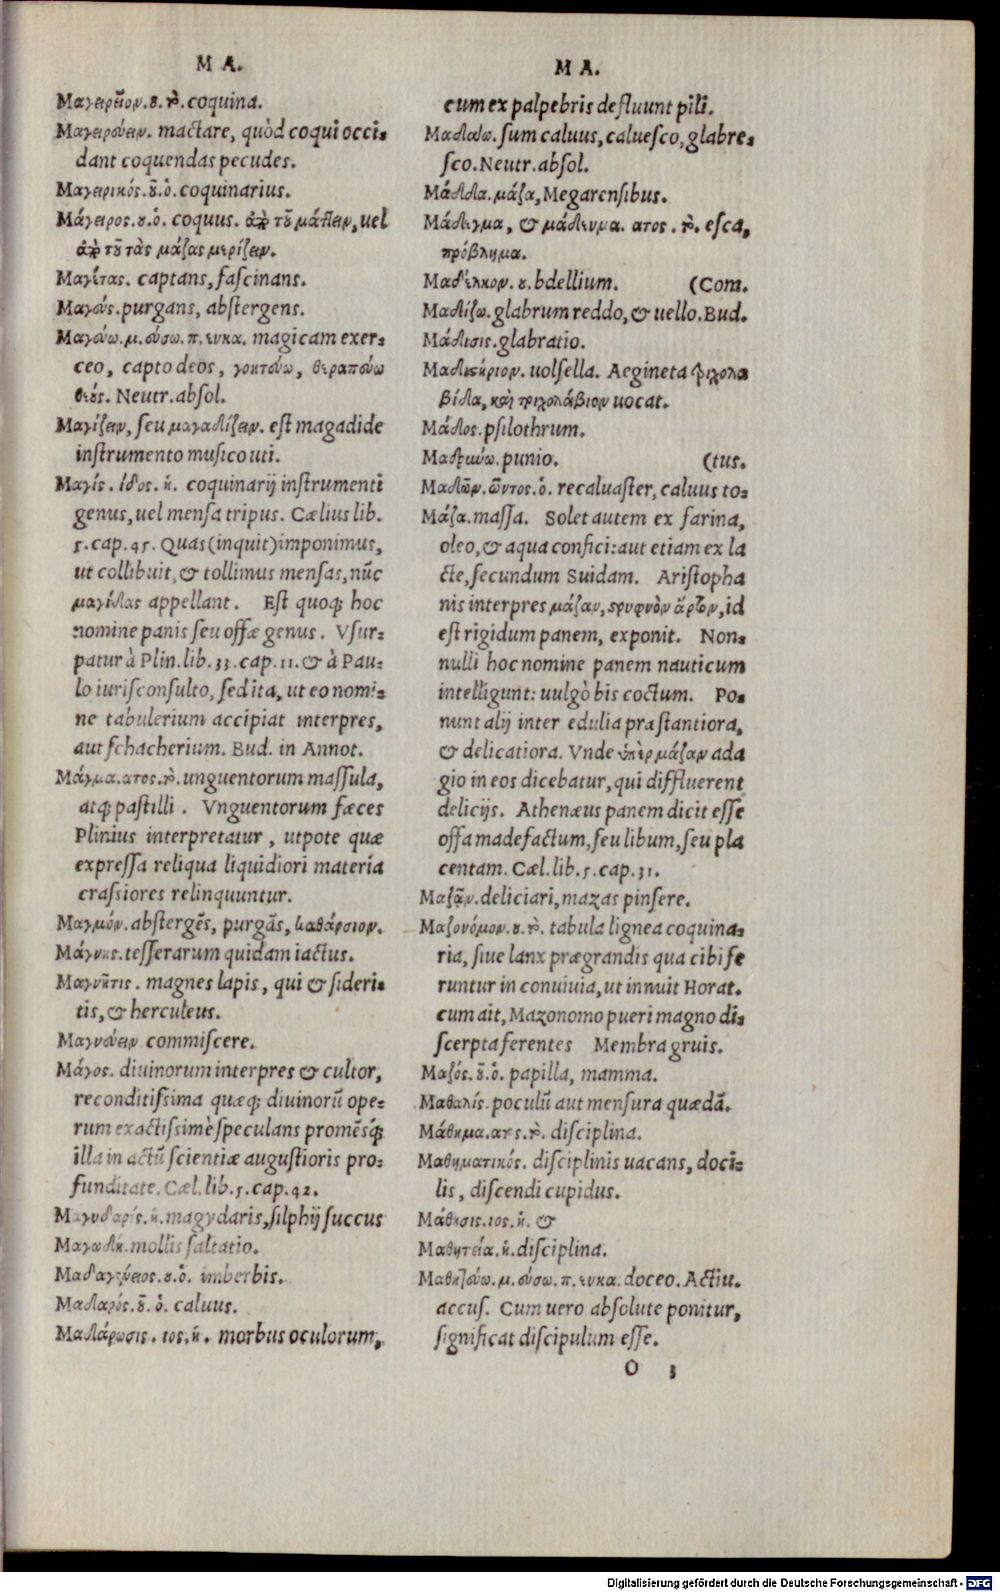 M A.
Μαγειρεῖον.ου.τὸ.coquina.
Μαγειρεύειν. mactare, quòd coqui occi-
dant coquendas pecudes.
Μαγειρικός.οῦ.ὁ.coquinarius.
Μάγειρος.ου.ὁ. coquus. ἀπὸ τοῦ μάττειν, uel
ἀπὸ τοῦ τὰς μάζας μερίζειν.
Μαγέτας. captans, fascinans.
Μαγεύς.purgans, abstergens.
Μαγεύω.μ.εύσω.π.ευκα. magicam exer-
ceo, capto deos, γοητεύω, θεραπεύω
θεούς. Neutr.absol.
Μαγίζειν, seu μαγαδίζειν. est magadide
instrumento musico uti.
Μαγίς. ίδος. ἡ. coquinarij instrumenti
genus, uel mensa tripus. Cælius lib.
5.cap.45. Quas(inquit)imponimus,
ut collibuit, & tollimus mensas, nūc
μαγίδας appellant. Est quoqꝫ hoc
nomine panis seu offæ genus. Vsur-
patur à Plin.lib.33.cap.11.& à Pau-
lo iurisconsulto, sed ita, ut eo nomi-
ne tabulerium accipiat interpres,
aut schacherium. Bud. in Annot.
Μάγμα.ατος.τὸ.unguentorum massula,
atqꝫ pastilli. Vnguentorum fæces
Plinius interpretatur, utpote quæ
expressa reliqua liquidiori materia
crassiores relinquuntur.
Μαγμόν.abstergēs, purgās, καθάρσιον.
Μάγνης.tesserarum quidam iactus.
Μαγνῆτις. magnes lapis, qui & sideri-
tis, & herculeus.
Μαγνεύειν commiscere.
Μάγος. diuinorum interpres & cultor,
reconditissima quæqꝫ diuinorū ope-
rum exactissimè speculans promēsqꝫ
illa in actū scientiæ augustioris pro-
funditate. Cæl.lib.5.cap.42.
Μαγυδαρίς.ἡ.magydaris, silphij succus
Μαγωδή.mollis saltatio.
Μαδαγένειος.ου.ὁ. imberbis.
Μαδαρός.οῦ.ὁ. caluus.
Μαδάρωσις. ιος.ἡ. morbus oculorum,
M A.
cum ex palpebris defluunt pili.
Μαδάω.sum caluus, caluesco, glabre-
sco.Neutr.absol.
Μάδδα.μάζα, Megarensibus.
Μάδειγμα, & μάδευμα. ατος. τὸ. esca,
πρόβλημα.
Μαδέλκον.ου.bdellium. (Com.
Μαδίζω.glabrum reddo, & uello.Bud.
Μάδισις.glabratio.
Μαδιστήριον. uolsella. Aegineta τριχολα
βίδα, καὶ τριχολάβιον uocat.
Μάδος.psilothrum.
Μαδρυύω.punio. (tus.
Μαδῶν.ῶντος.ὁ.recaluaster, caluus to-
Μάζα.massa. Solet autem ex farina,
oleo, & aqua confici:aut etiam ex la
cte, secundum Suidam. Aristopha
nis interpres μάζαν, στρυφνὸν ἄρτον, id
est rigidum panem, exponit. Non-
nulli hoc nomine panem nauticum
intelligunt: uulgò bis coctum. Po-
nunt alij inter edulia præstantiora,
& delicatiora. Vnde ὑπὲρ μάζαν ada
gio in eos dicebatur, qui diffluerent
delicijs. Athenæus panem dicit esse
offa madefactum, seu libum, seu pla
centam. Cæl.lib.5.cap.31.
Μαζᾷν.deliciari, mazas pinsere.
Μαζονόμον.ου.τὸ. tabula lignea coquina-
ria, siue lanx prægrandis qua cibi fe
runtur in conuiuia, ut innuit Horat.
cum ait, Mazonomo pueri magno di-
scerpta ferentes Membra gruis.
Μαζός.οῦ.ὁ. papilla, mamma.
Μαθαλίς.poculū aut mensura quædā.
Μάθημα.ατος.τὸ. disciplina.
Μαθηματικός. disciplinis uacans, doci-
lis, discendi cupidus.
Μάθησις.ιος.ἡ. &
Μαθητεία.ἡ.disciplina.
Μαθητεύω.μ.εύσω.π.ευκα.doceo.Actiu.
accus. Cum uero absolute ponitur,
significat discipulum esse.
O 3
Digitalisierung gefördert durch die Deutsche Forschungsgemeinschaft - DFG